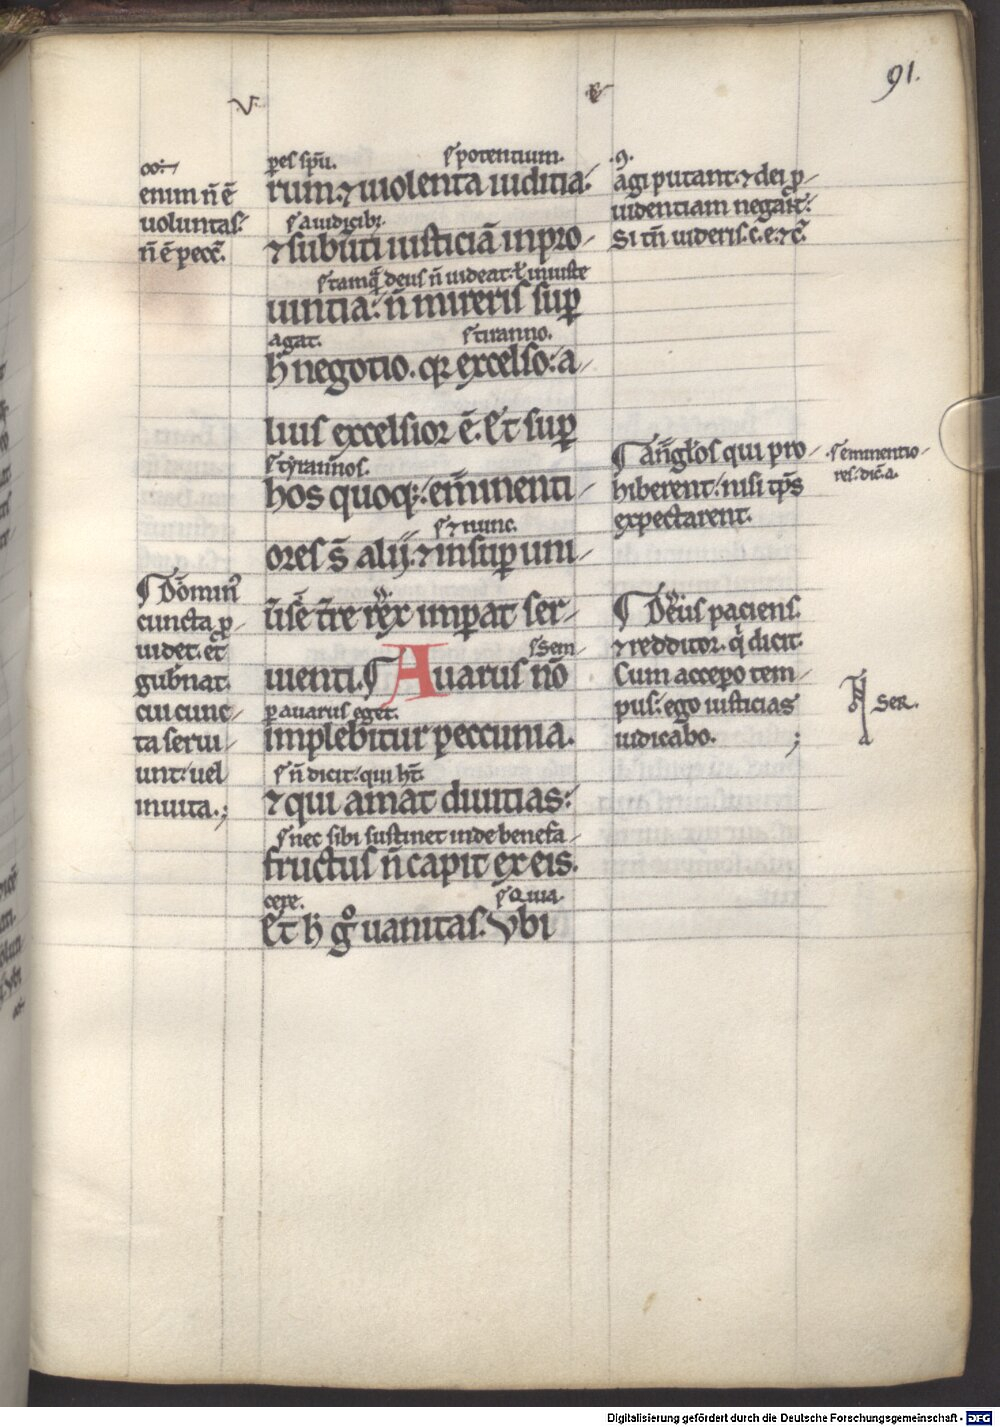 91.
.v.
enim n̄ ē
uoluntas:
n̄ ē pecc̄.
ꝑ eſ ſpū. ſ potentium.
rum. ⁊ uiolenta iuditia:
ſ a iudicibꝰ.
⁊ subuti iusticiā in pro
ſ tamq̄ deus n̄ uideat. ł iniuste
uintia: n̄ mireris suꝑ
agat. ſ tiranno.
h̄ negotio. qꝛ excelso: a
lius excelsior ē. Et suꝑ
ſ tẏrannos.
hos quoq;: emīnenti
ſ ⁊ nunc.
ores s̄ alij. ⁊ insuꝑ uni
ūse t̄re rex imꝑat ser
ſ Sem
uienti. ¶ Auarus nō
ꝑ auarus eget.
implebitur peccunia.
ſ n̄ dicit: qui hꝫ.
⁊ qui amat diuitias:
ſ nec sibi sustinet inde benefa
fructus n̄ capit ex eis.
cere. ſ Quia
Et h̄ gͦ uanitas. Vbi
¶ Dominꝰ
cuncta ꝓ
uidet. et
gub̄nat.
cui cunc
ta serui
unt: uel
inuita.;
.9.
agi putant: ⁊ dei ꝓ
uidentiam negar̄t:
Si tn̄ uideris. c. e. ⁊ c̄.
¶ Anglos qui pro
hiberent: nisi tp̄s
expectarent.
ſ eminentio
res: dic̄. a.
¶ Deus paciens
⁊ redditor. q̇ dicit.
Cum accepo tem
pus: ego iusticias
iudicabo. ;
SER.
Digitalisierung gefördert durch die Deutsche Forschungsgemeinschaft - DFG